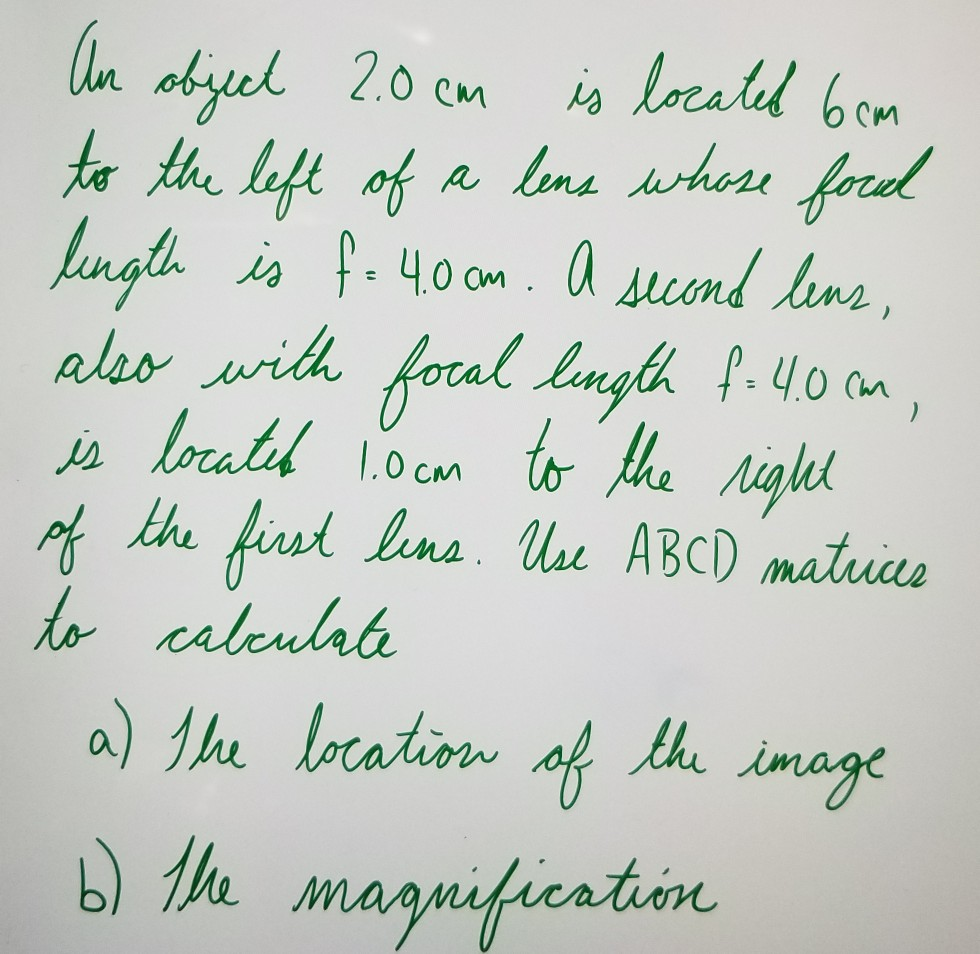 An object 2.0 cm is located 6 cm
to the left of a lens whose focal
length is f = 4.0 cm. A second lens,
also with focal length f = 4.0 cm,
is located 1.0 cm to the right
of the first lens. Use ABCD matrices
to calculate
a) The location of the image
b) The magnification